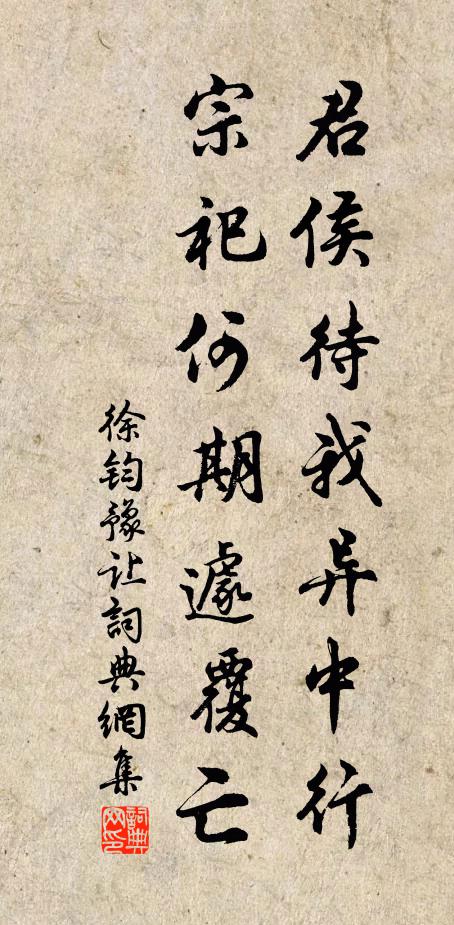 君侯待我异中行
宗祀何期遽覆亡
徐钧豫让詞典網集
詞典网印